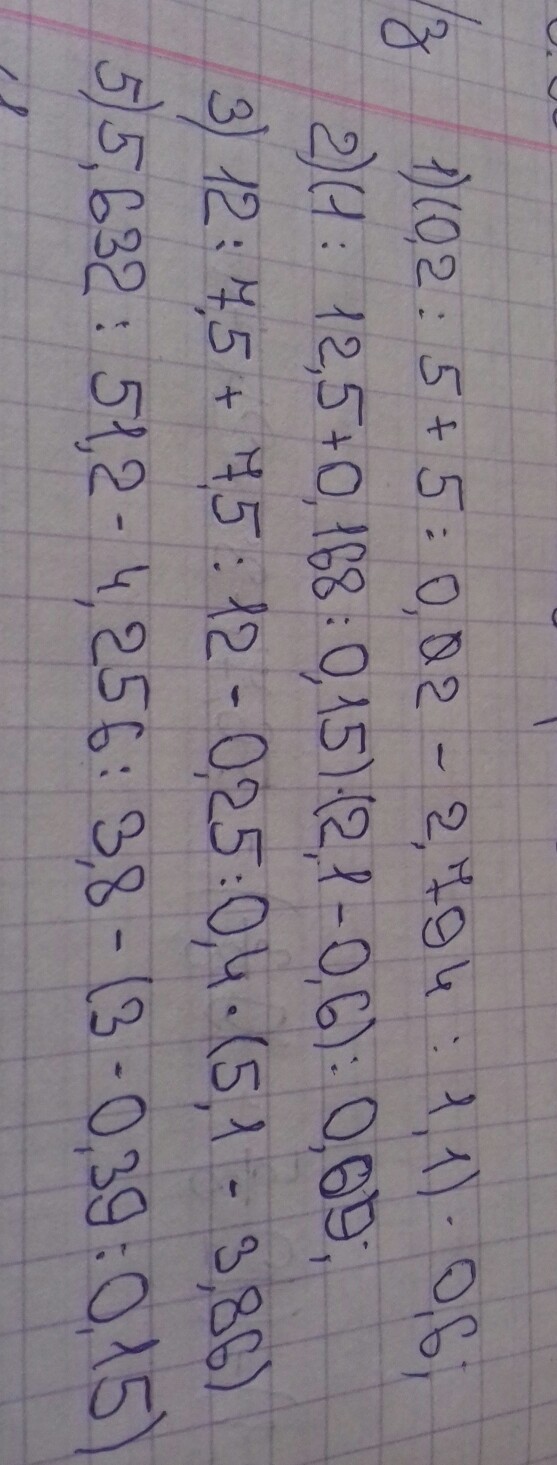 /З
1) (0,2 : 5 + 5 : 0,02 - 2,794 : 1,1) · 0,6;
2) (1 : 12,5 + 0,168 : 0,15) · (2,1 - 0,6) : 0,69;
3) 12 : 7,5 + 7,5 : 12 - 0,25 : 0,4 · (5,1 - 3,86)
5) 5,632 : 51,2 - 4,256 : 3,8 - (3 - 0,39 : 0,15)